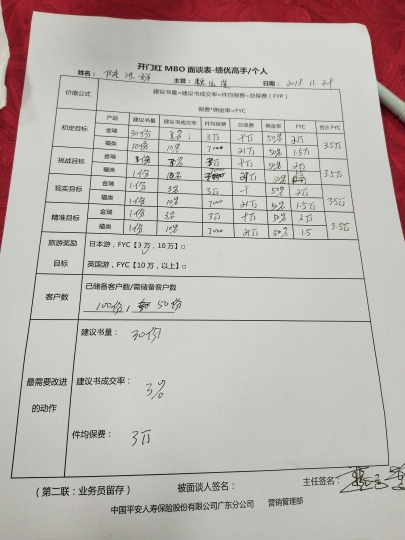 开门红 MBO 面谈表-绩优高手/个人
姓名： 主管： 日期：2018.11.29
价值公式 建议书量*建议书成交率*件均保费=总保费（FYP）
保费*佣金率=FYC
产品 建议书量 建议书成交率 件均保费 总保费 佣金率 FYC 合计 FYC
初定目标 金瑞 30份 3万 50% 2万 3.5万
福类 10份 7000 21万 50% 1.5万
挑战目标 金瑞 3万 50% 2万 3.5万
福类 1份
现实目标 金瑞 1份 3名 3万 50% 2万 3.5万
福类 1份 10名 7000 21万 50% 1.5万
精准目标 金瑞 1份 3名 3万 50% 2万 3.5万
福类 1份 10名 7000 21万 50% 1.5
旅游奖励目标 日本游，FYC【3万，10万】□
英国游，FYC【10万，以上】□
客户数 已储备客户数/需储备客户数
100份，50份
最需要改进的动作 建议书量：30份
建议书成交率：3%
件均保费：3万
（第二联：业务员留存） 被面谈人签名： 主任签名：
中国平安人寿保险股份有限公司广东分公司 营销管理部